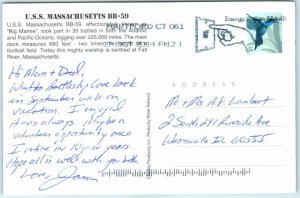 U.S.S. MASSACHUSETTS BB-59
U.S.S. MASSACHUSETTS BB-59, affectionately
"Big Mamie", took part in 35 battles in both the Atlantic
and Pacific Oceans, logging over 225,000 miles. The main
deck measures 680 feet - two times
football field. Today this mighty warship is berthed at Fall
River, Massachusetts.
HARTFORD CT 061
OCT 2014 PM 2 L
Hi Mom & Dad,
Went to Battleship Cove back
in September while on
vacation. I enjoyed
it as always. Maybe a
volunteer opportunity once
I retire in 10 or so years.
Hope all is well with you both.
Love, Jason
ADDRESS
Mr. & Mrs. A.K. Lambert
Riverside Ave
Warrenville IL 60555